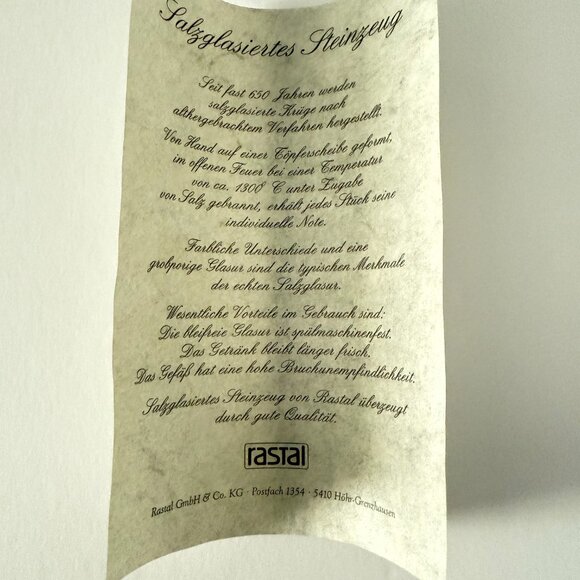 Salzglasiertes Steinzeug
Seit fast 650 Jahren werden
salzglasierte Krüge nach
althergebrachtem Verfahren hergestellt.
Von Hand auf einer Töpferscheibe geformt,
im offenen Feuer bei einer Temperatur
von ca. 1300° C unter Zugabe
von Salz gebrannt, erhält jedes Stück seine
individuelle Note.
Farbliche Unterschiede und eine
grobporige Glasur sind die typischen Merkmale
der echten Salzglasur.
Wesentliche Vorteile im Gebrauch sind:
Die bleifreie Glasur ist spülmaschinenfest.
Das Getränk bleibt länger frisch.
Das Gefäß hat eine hohe Bruchunempfindlichkeit.
Salzglasiertes Steinzeug von Rastal überzeugt
durch gute Qualität.
rastal
Rastal GmbH & Co. KG · Postfach 1354 · 5410 Höhr-Grenzhausen